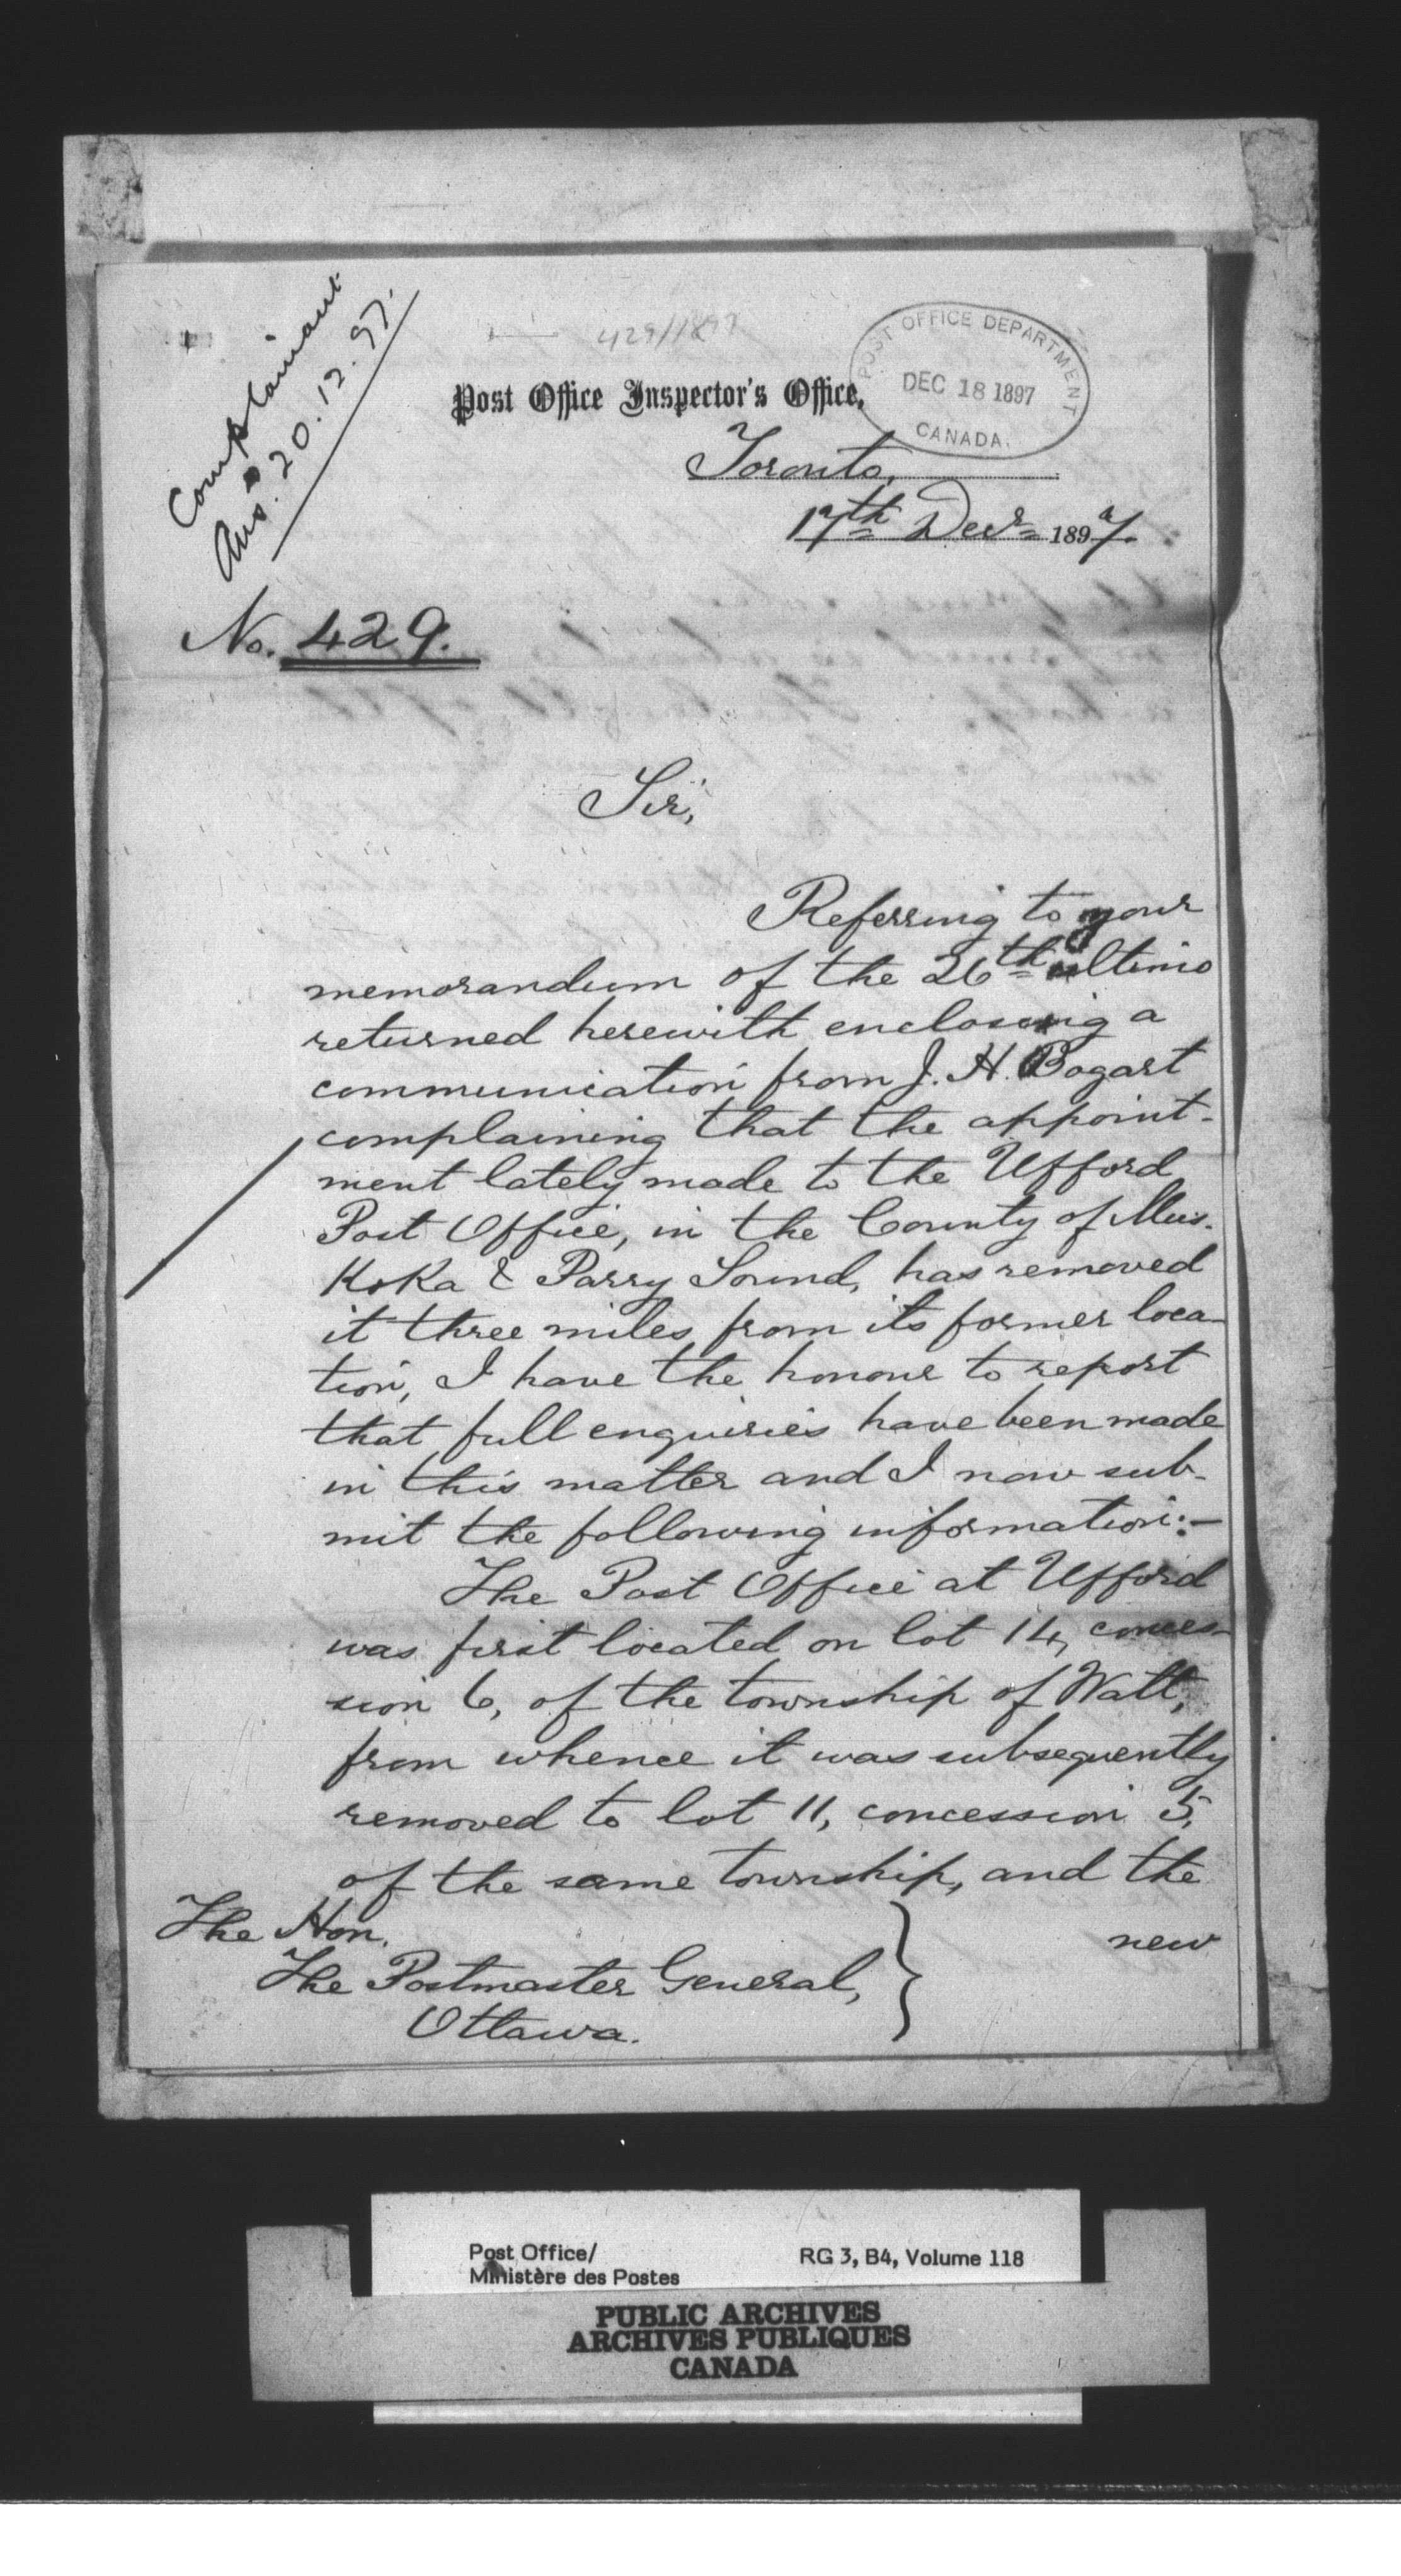 Complainant
Ans. 20.12.97.
429/1897
POST OFFICE DEPARTMENT
DEC 18 1897
CANADA.
Post Office Inspector's Office,
Toronto,
17th Decr 1897.
No. 429.
Sir,
Referring to your
memorandum of the 26th ultimo
returned herewith enclosing a
communication from J. H. Bogart
complaining that the appoint-
ment lately made to the Ufford
Post Office, in the County of Mus-
Koka & Parry Sound, has removed
it three miles from its former loca-
tion, I have the honour to report
that full enquiries have been made
in this matter and I now sub-
mit the following information:-
The Post Office at Ufford
was first located on lot 14, conces-
sion 6, of the township of Watt,
from whence it was subsequently
removed to lot 11, concession 5,
of the same township, and the
new
The Hon.
The Postmaster General,
Ottawa.
Post Office/
Ministère des Postes
RG 3, B4, Volume 118
PUBLIC ARCHIVES
ARCHIVES PUBLIQUES
CANADA